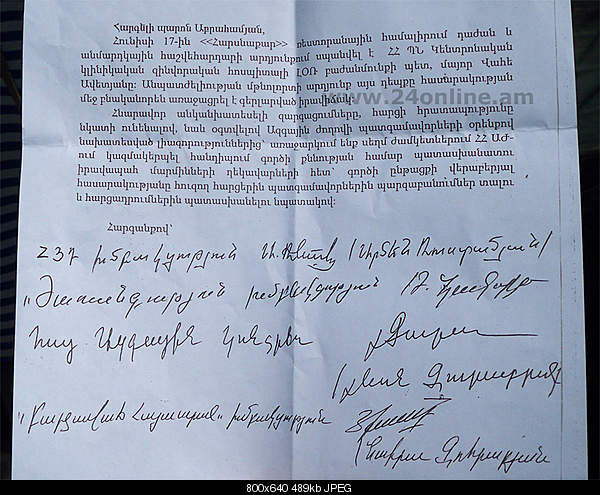 Հարգելի պարոն Աբրահամյան,
Հունիսի 17-ին <<Հարսնաքար>> ռեստորանային համալիրում դաժան և
անմարդկային հաշվեհարդարի արդյունքում սպանվել է ՀՀ ՊՆ Կենտրոնական
կլինիկական զինվորական հոսպիտալի ԼՕՌ բաժանմունքի պետ, մայոր Վահե
Ավետյանը: Անպատժելիության մթնոլորտի արդյունք այս դեպքը հասարակության
մեջ բնականորեն առաջացրել է գերլարված իրավիճակ:
www.24online.am
Հնարավոր անկանխատեսելի զարգացումները, հարցի հրատապությունը
նկատի ունենալով, նաև օգտվելով Ազգային ժողովի պատգամավորների օրենքով
նախատեսված լիազորություններից՝ առաջարկում ենք սեղմ ժամկետներում ՀՀ ԱԺ-
ում կազմակերպել հանդիպում գործի քննության համար պատասխանատու
իրավապահ մարմինների ղեկավարների հետ՝ գործի ընթացքի վերաբերյալ
հասարակությանը հուզող հարցերին պատգամավորներին պարզաբանումներ տալու
և հարցադրումներին պատասխանելու նպատակով:
Հարգանքով՝
ՀՅԴ խմբակցություն (Արմեն Ռուստամյան)
"Ժառանգություն" խմբակցություն
Հայ Ազգային Կոնգրես
(Լևոն Զուրաբյան)
"Բարգավաճ Հայաստան" խմբակցություն
(Նաիրա Զոհրաբյան)
800x640 489kb JPEG